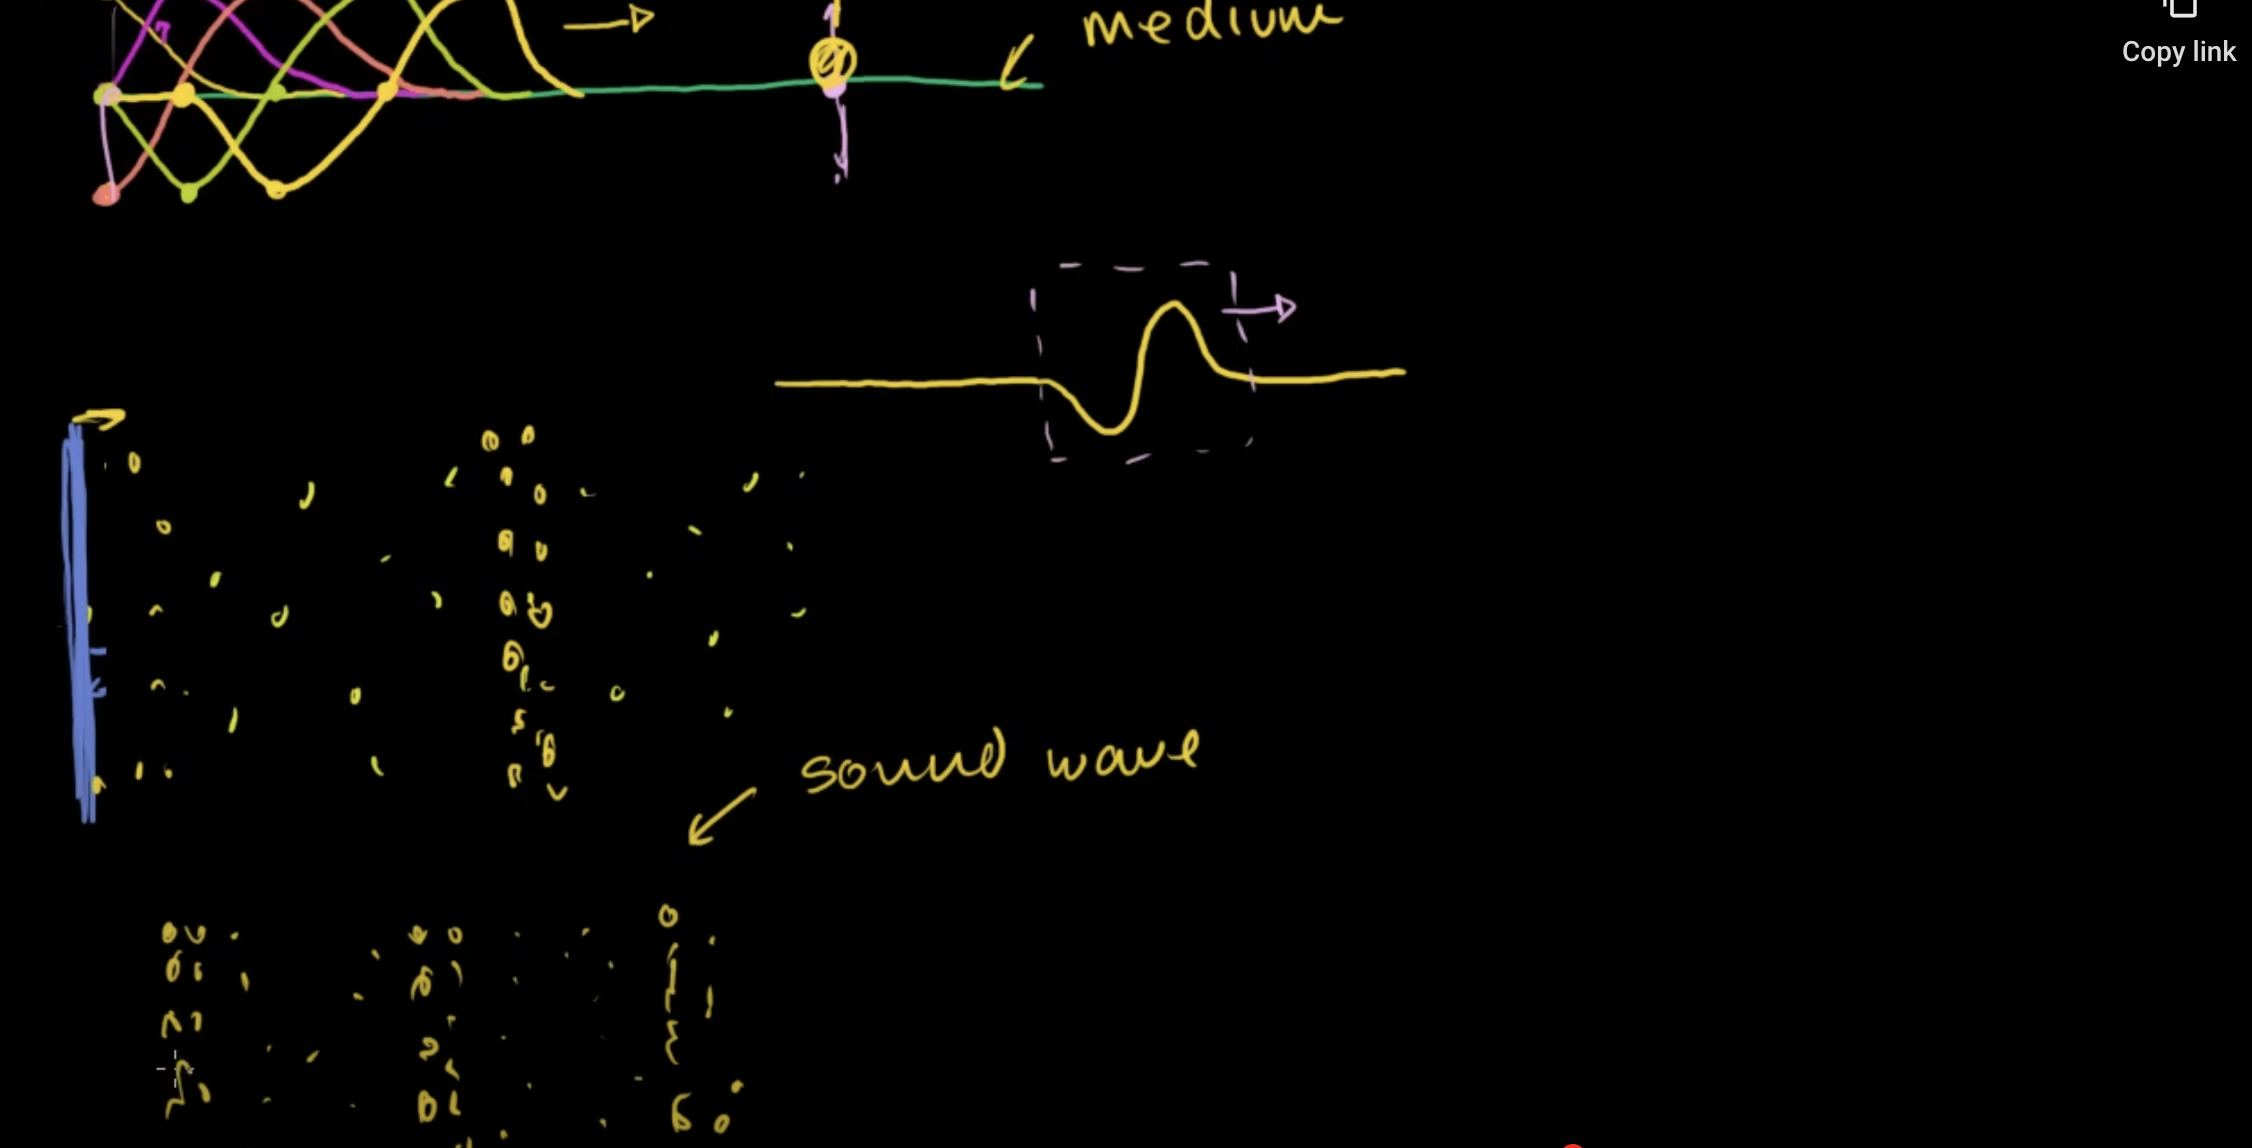 medium
Copy link
sound wave